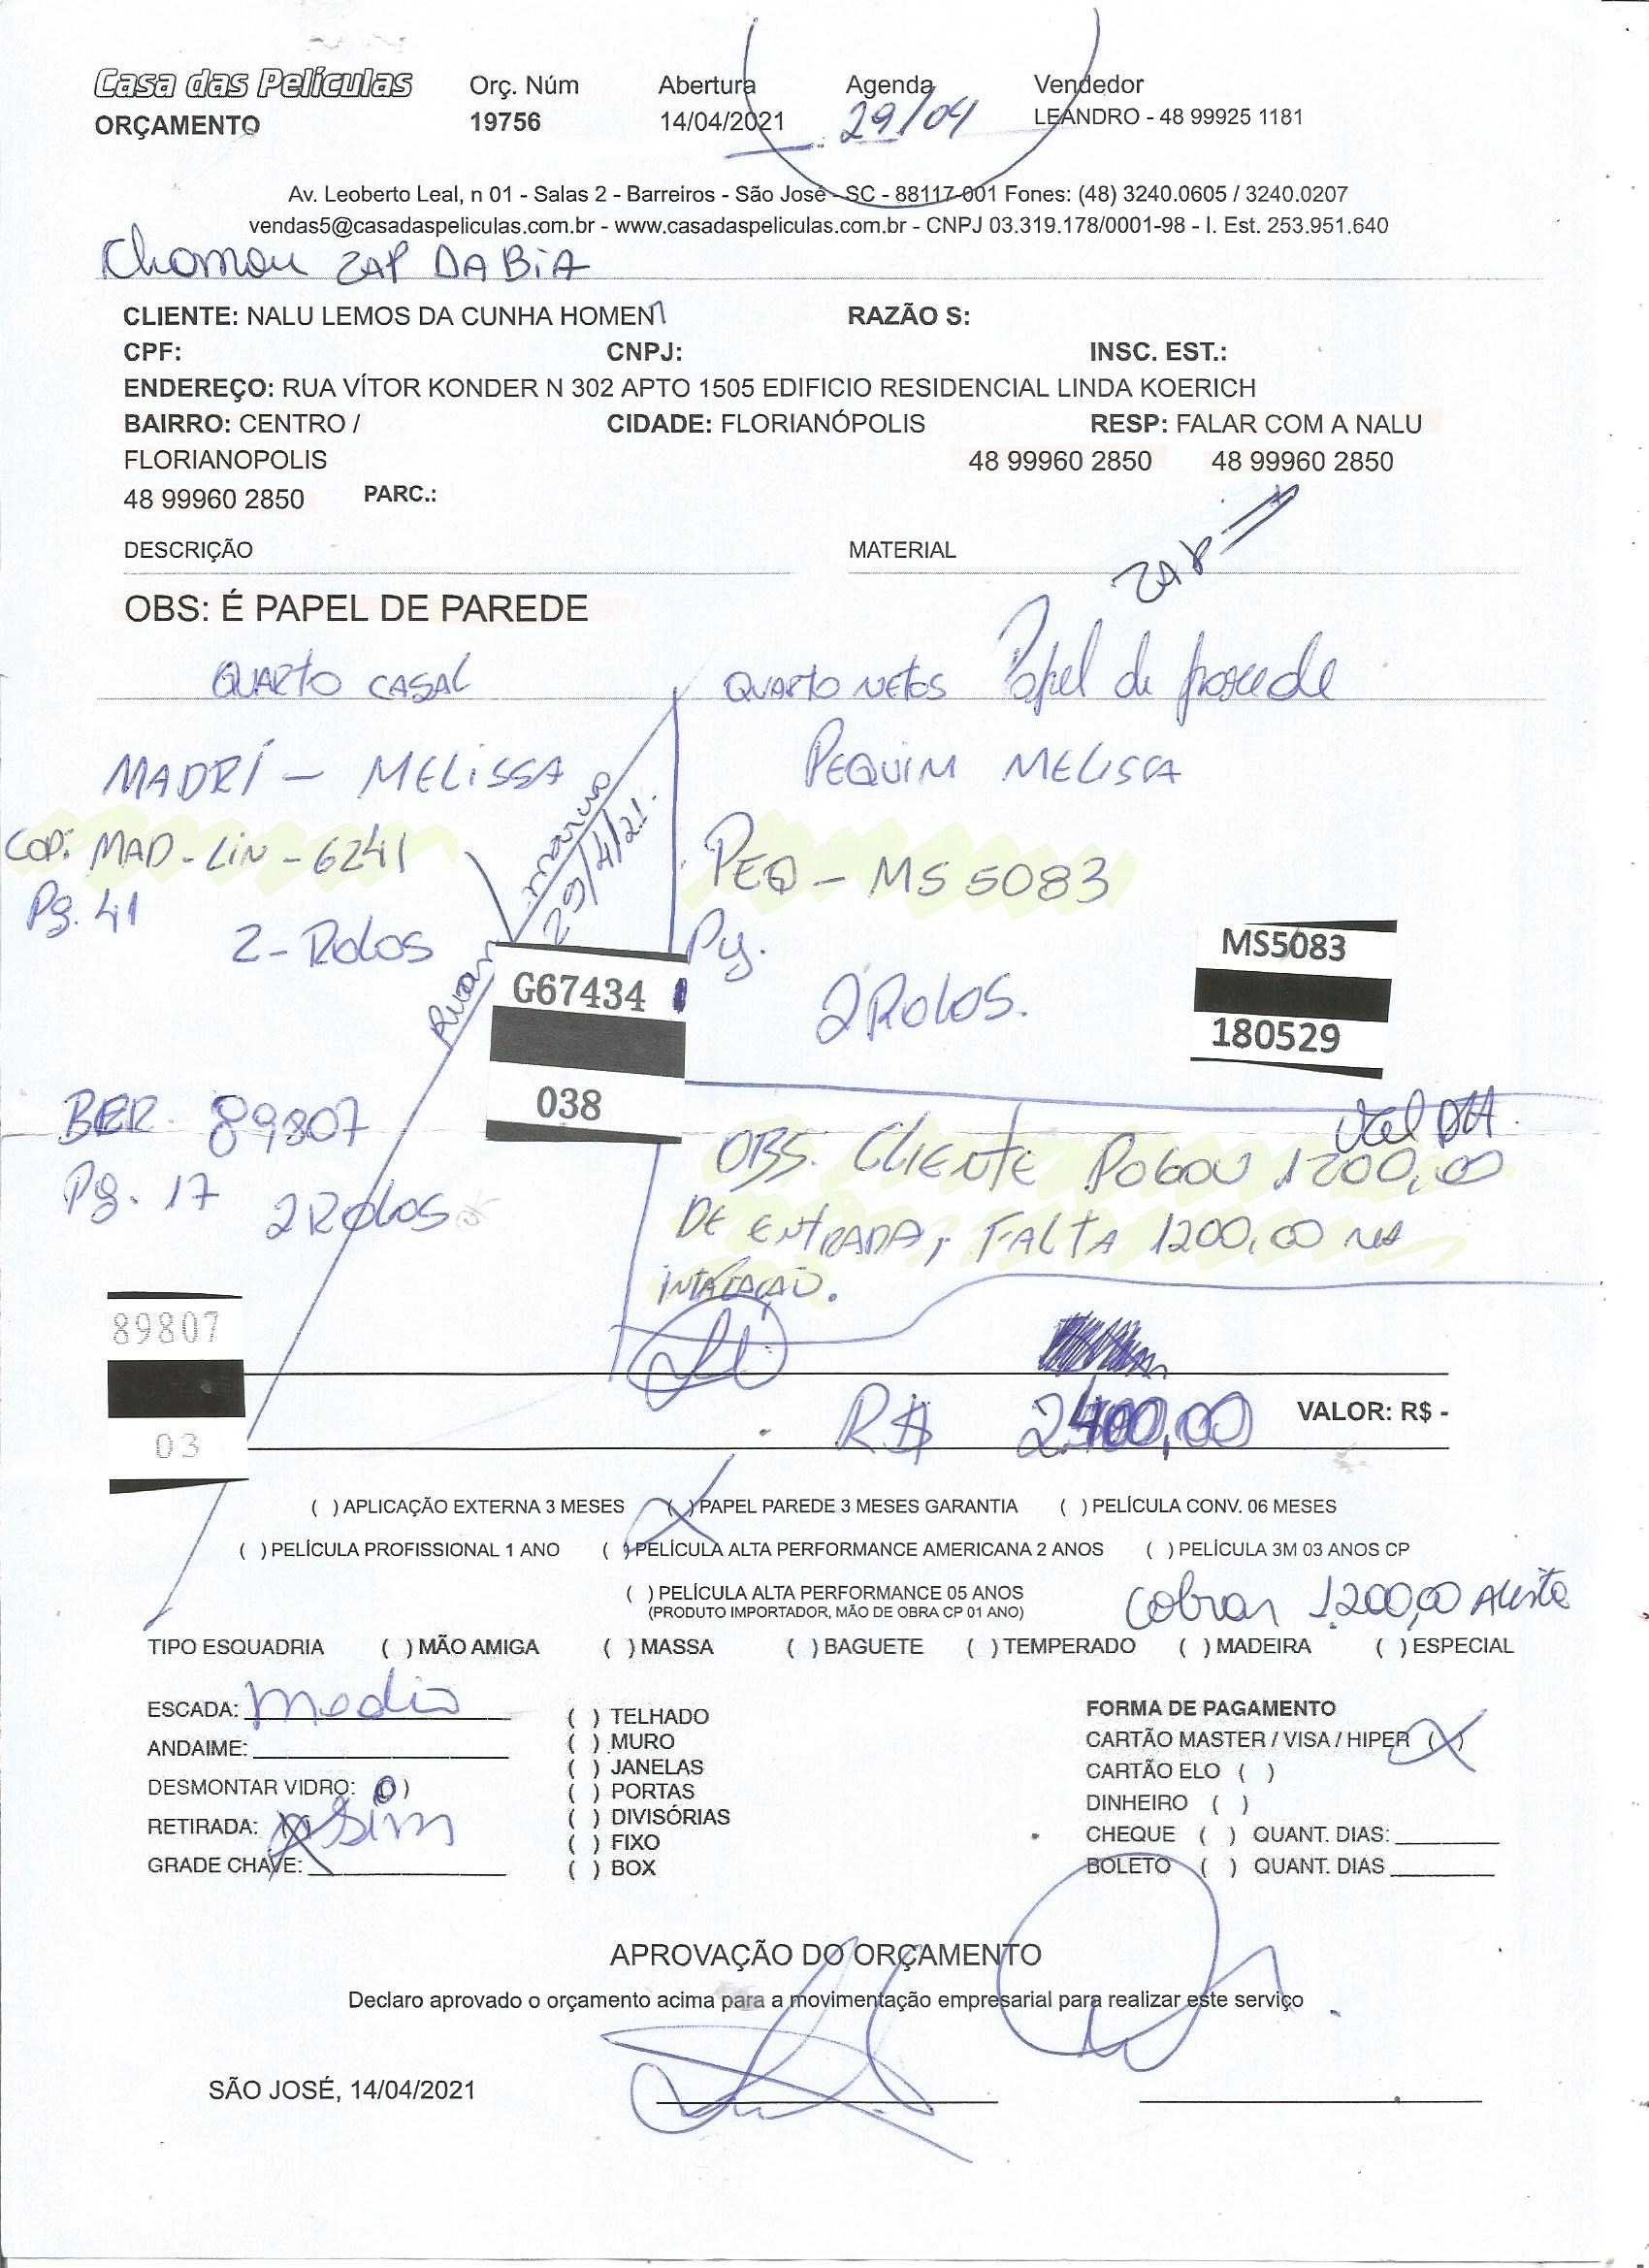 Casa das Películas Orç. Núm Abertura Agenda Vendedor
ORÇAMENTO 19756 14/04/2021 29/04 LEANDRO - 48 99925 1181
Av. Leoberto Leal, n 01 - Salas 2 - Barreiros - São José - SC - 88117-001 Fones: (48) 3240.0605 / 3240.0207
vendas5@casadaspeliculas.com.br - www.casadaspeliculas.com.br - CNPJ 03.319.178/0001-98 - I. Est. 253.951.640
Chamou ZAP DA BIA
CLIENTE: NALU LEMOS DA CUNHA HOMEM RAZÃO S:
CPF: CNPJ: INSC. EST.:
ENDEREÇO: RUA VÍTOR KONDER N 302 APTO 1505 EDIFICIO RESIDENCIAL LINDA KOERICH
BAIRRO: CENTRO / CIDADE: FLORIANÓPOLIS RESP: FALAR COM A NALU
FLORIANOPOLIS 48 99960 2850 48 99960 2850
48 99960 2850 PARC.:
ZAP
DESCRIÇÃO MATERIAL
OBS: É PAPEL DE PAREDE
QUARTO CASAL QUARTO NETOS Papel de parede
MADRÍ - MELISSA PEQUIM MELISSA
COD: MAD-LIN-6241 PEQ - MS 5083
Pg. 41 Pg.
2-ROLOS 2 ROLOS.
29/4/21.
G67434 MS5083
038 180529
BER. 89807
Pg. 17 2 ROLOS
OBS. CLIENTE PAGOU 1200,00
DE ENTRADA, FALTA 1200,00 NA
INTALAÇÃO.
89807
03
R$ 2400,00 VALOR: R$ -
( ) APLICAÇÃO EXTERNA 3 MESES (X) PAPEL PAREDE 3 MESES GARANTIA ( ) PELÍCULA CONV. 06 MESES
( ) PELÍCULA PROFISSIONAL 1 ANO ( ) PELÍCULA ALTA PERFORMANCE AMERICANA 2 ANOS ( ) PELÍCULA 3M 03 ANOS CP
( ) PELÍCULA ALTA PERFORMANCE 05 ANOS
(PRODUTO IMPORTADOR, MÃO DE OBRA CP 01 ANO)
Cobrar 1.200,00
TIPO ESQUADRIA ( ) MÃO AMIGA ( ) MASSA ( ) BAGUETE ( ) TEMPERADO ( ) MADEIRA ( ) ESPECIAL
ESCADA: media ( ) TELHADO FORMA DE PAGAMENTO
ANDAIME: ( ) MURO CARTÃO MASTER / VISA / HIPER (X)
( ) JANELAS CARTÃO ELO ( )
DESMONTAR VIDRO: ( ) ( ) PORTAS DINHEIRO ( )
RETIRADA: (X) Sim ( ) DIVISÓRIAS CHEQUE ( ) QUANT. DIAS:
( ) FIXO
GRADE CHAVE: ( ) BOX BOLETO ( ) QUANT. DIAS
APROVAÇÃO DO ORÇAMENTO
Declaro aprovado o orçamento acima para a movimentação empresarial para realizar este serviço
SÃO JOSÉ, 14/04/2021